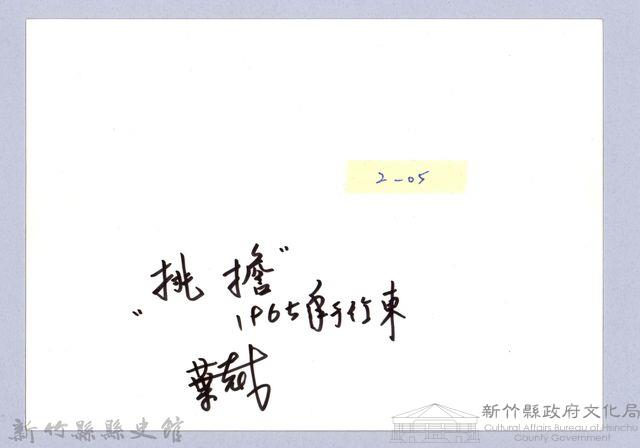 2-05
"挑 擔"
1965年于竹東
新竹縣縣史館
新竹縣政府文化局
Cultural Affairs Bureau of Hsinchu
County Government